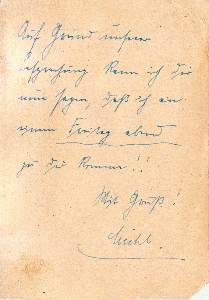 Auf Grund unserer
esprechung kann ich Dir
nun sagen, daß ich an
einem Freitag abend
zu Dir komme!!
Mit Gruß!